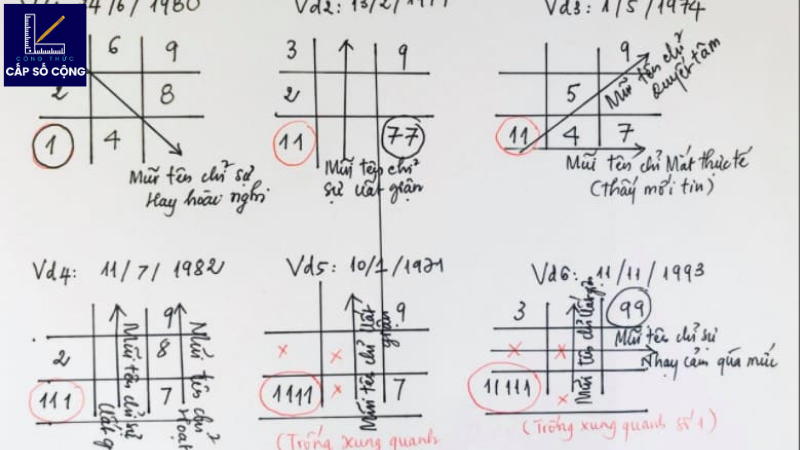 CÔNG THỨC
CẤP SỐ CỘNG
4/6/1980
6 9
2 8
1 4
Mũi tên chỉ sự
Hay hoài nghi
Vd2: 13/2/
3 9
2
11 77
Mũi tên chỉ
sự uất giận
Vd3: 1/5/1974
9
5
11 4 7
Mũi tên chỉ
quyết tâm
Mũi tên chỉ Mất thực tế
(Thấy mới tin)
Vd4: 11/7/1982
9
2 8
111 7
Mũi tên chỉ sự
Uất g
Mũi tên chỉ
Hoạt
Vd5: 10/1/1971
9
x x
1111 x 7
Mũi tên chỉ Uất
giận
(Trống xung quanh
Vd6: 11/11/1993
3 99
x x
11111 x
Mũi tên chỉ Uất
Mũi tên chỉ sự
Nhạy cảm quá mức
(Trống xung quanh số 1)